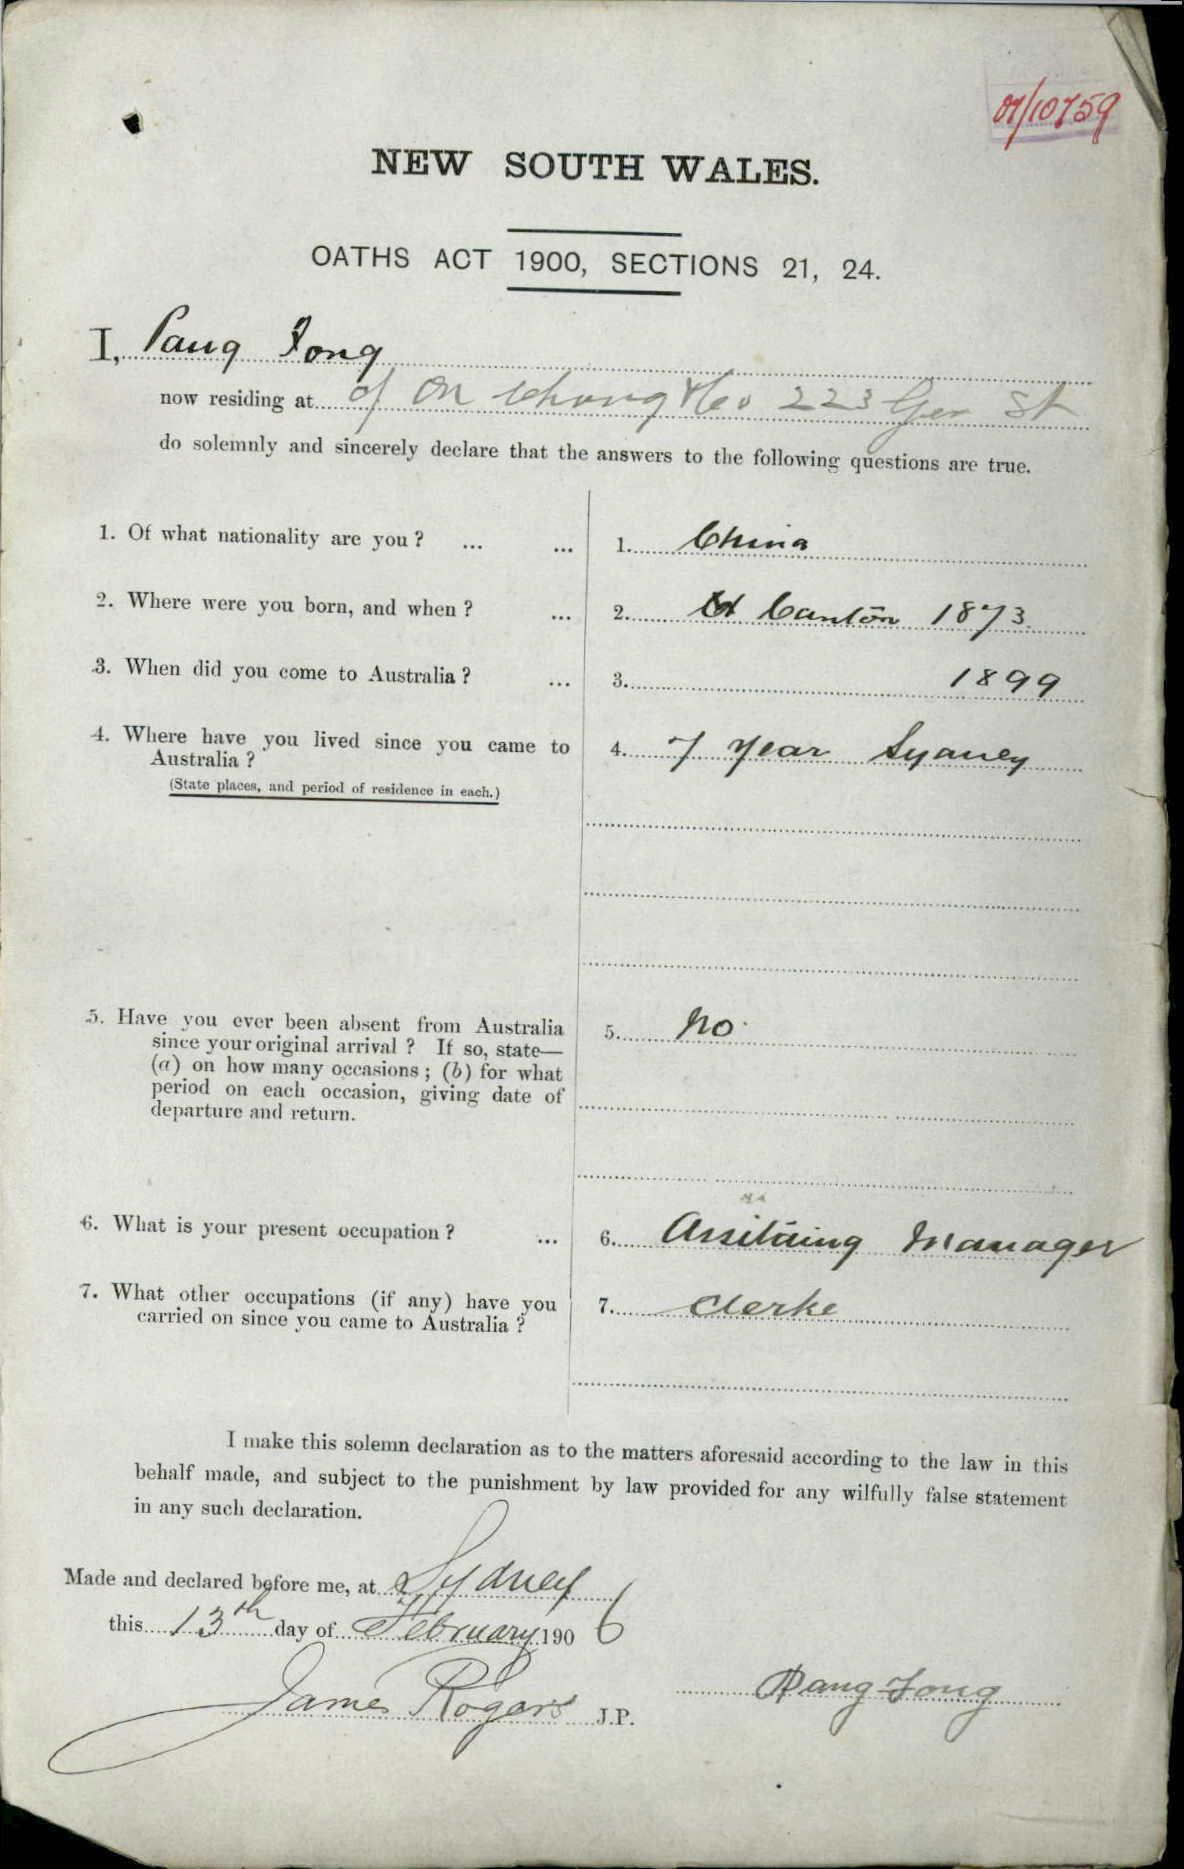 07/10759
NEW SOUTH WALES.
OATHS ACT 1900, SECTIONS 21, 24.
I, Pang Tong
now residing at of On Chong & Co 223 Geo St
do solemnly and sincerely declare that the answers to the following questions are true.
1. Of what nationality are you ? ... ... 1. China
2. Where were you born, and when ? ... 2. At Canton 1873
3. When did you come to Australia ? ... 3. 1899
4. Where have you lived since you came to 4. 7 year Sydney
Australia ?
(State places, and period of residence in each.)
5. Have you ever been absent from Australia 5. No
since your original arrival ? If so, state—
(a) on how many occasions ; (b) for what
period on each occasion, giving date of
departure and return.
6. What is your present occupation ? ... 6. Assitaing Manager
7. What other occupations (if any) have you 7. Clerke
carried on since you came to Australia ?
I make this solemn declaration as to the matters aforesaid according to the law in this
behalf made, and subject to the punishment by law provided for any wilfully false statement
in any such declaration.
Made and declared before me, at Sydney
this 13th day of February 1906
James Rogers J.P. Pang Tong